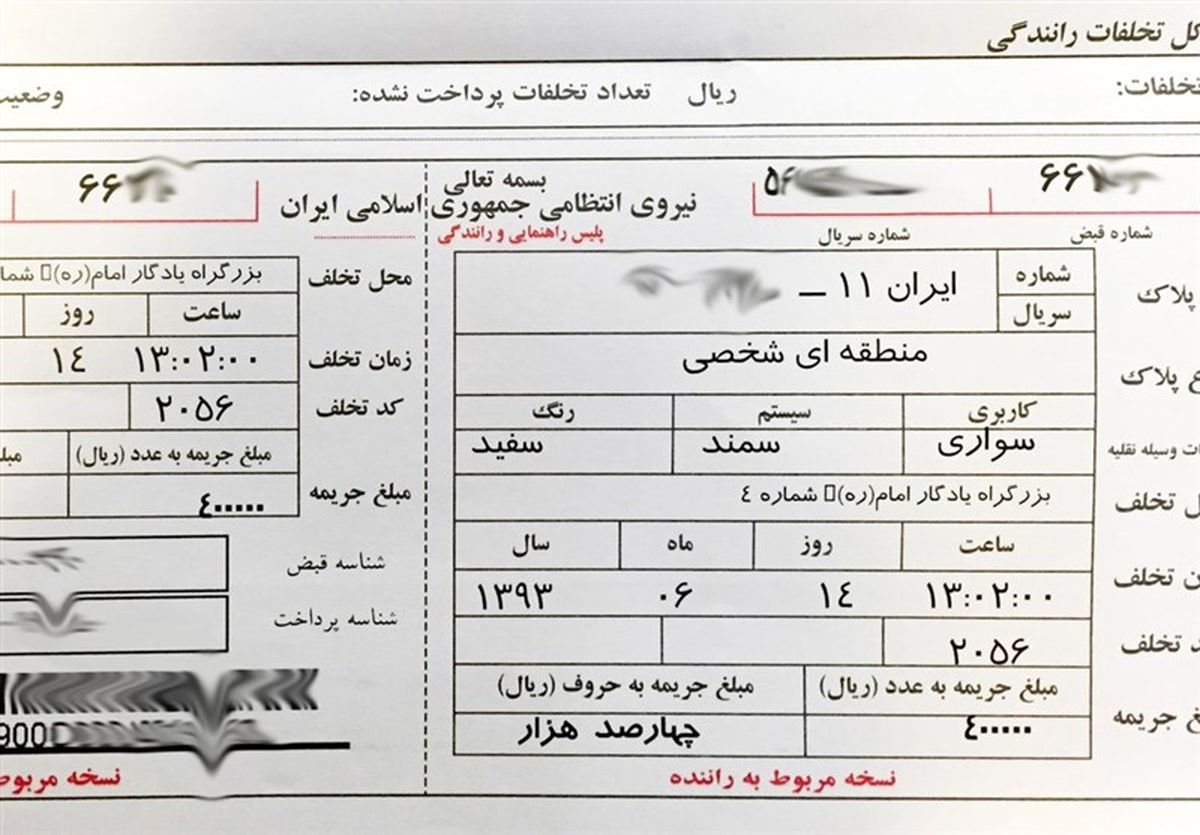 کل تخلفات رانندگی
تخلفات:
ریال تعداد تخلفات پرداخت نشده:
وضعیت
بسمه تعالی
نیروی انتظامی جمهوری اسلامی ایران
پلیس راهنمایی و رانندگی
۶۶
شماره قبض
شماره سریال
پلاک
شماره
سریال
ایران ۱۱ –
ع پلاک
منطقه ای شخصی
ات وسیله نقلیه
کاربری سیستم رنگ
سواری سمند سفید
ل تخلف
بزرگراه یادگار امام(ره)▯ شماره ٤
ن تخلف
ساعت روز ماه سال
۱۳:۰۲:۰۰ ۱٤ ۰۶ ۱۳۹۳
د تخلف
۲۰۵۶
غ جریمه
مبلغ جریمه به عدد (ریال) مبلغ جریمه به حروف (ریال)
٤۰۰۰۰۰ چهارصد هزار
نسخه مربوط به راننده
۶۶
محل تخلف
بزرگراه یادگار امام(ره)▯ شما
زمان تخلف
ساعت روز
۱۳:۰۲:۰۰ ۱٤
کد تخلف
۲۰۵۶
مبلغ جریمه
مبلغ جریمه به عدد (ریال)
٤۰۰۰۰۰
شناسه قبض
شناسه پرداخت
900
نسخه مربوط